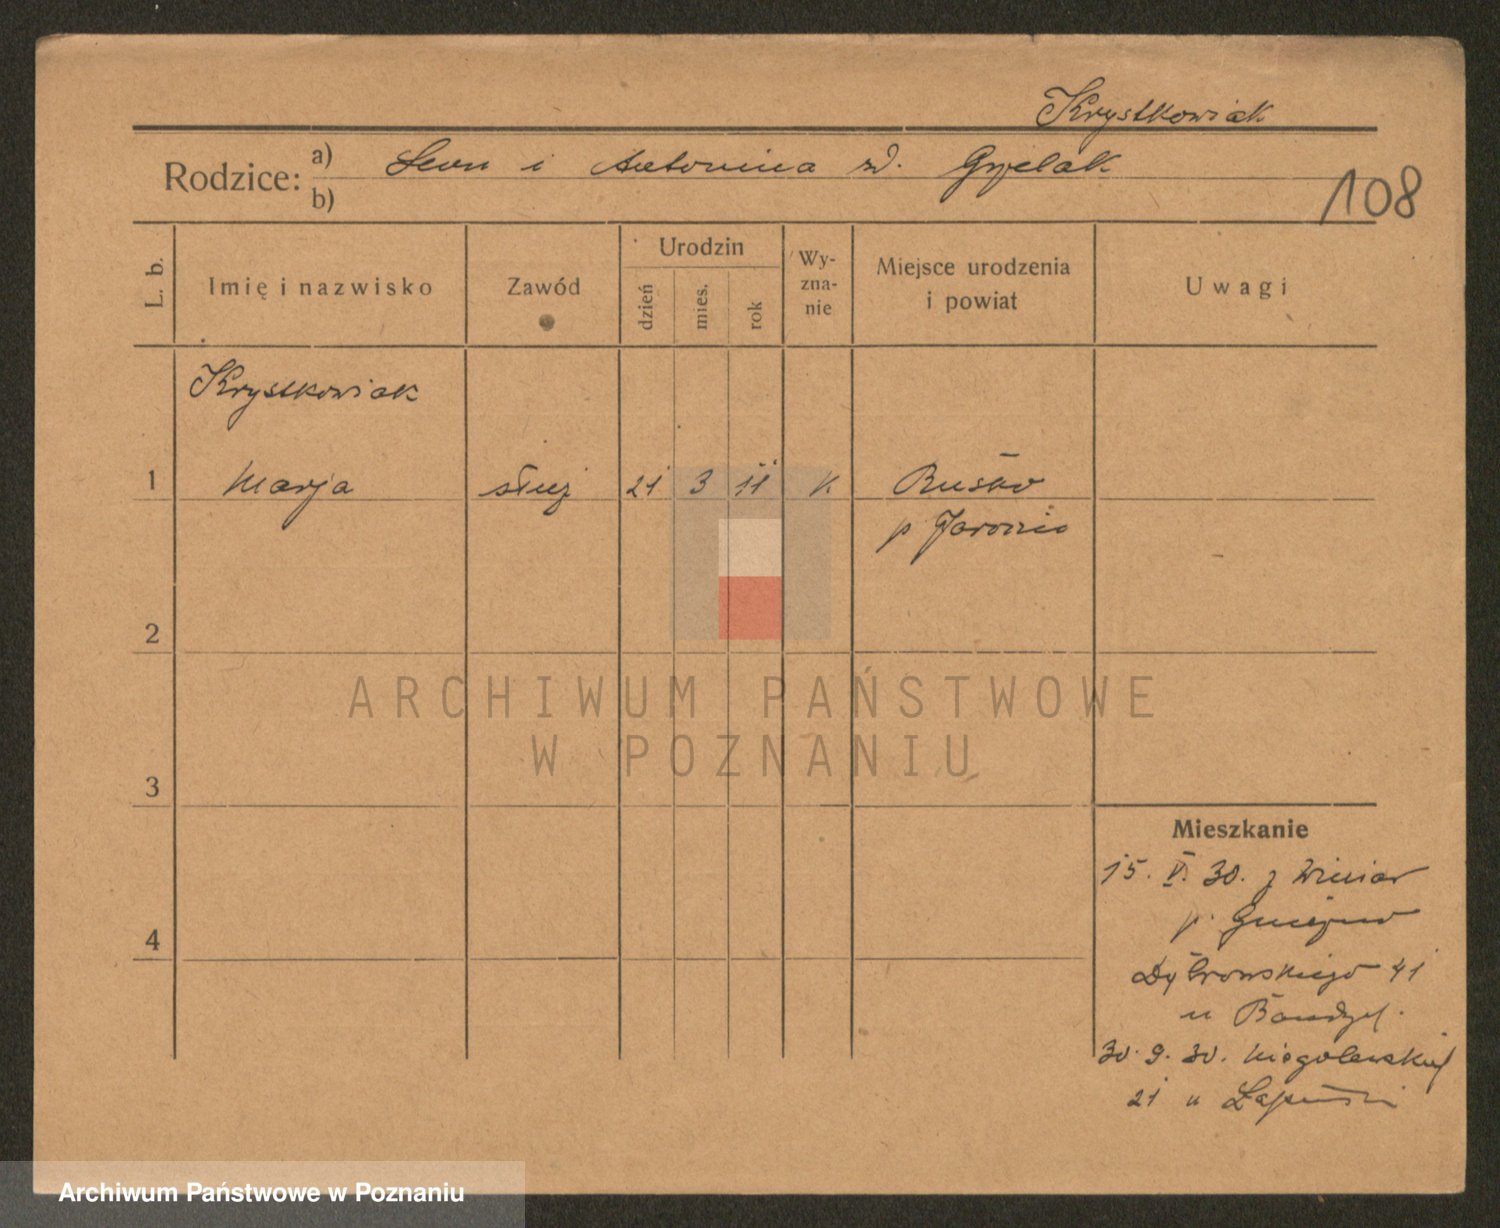 Krystkowiak
Rodzice: a) Leon i Antonina zd. Grzelak
b)
108
L. b.
Imię i nazwisko
Zawód
Urodzin
dzień
mies.
rok
Wy-
zna-
nie
Miejsce urodzenia
i powiat
Uwagi
Krystkowiak
1 Marja służ 21 3 11 K Rusko
p Jarocin
2
3
4
ARCHIWUM PAŃSTWOWE
W POZNANIU
Mieszkanie
15. V. 30. z Winiar
p. Gniezno
Dąbrowskiego 41
u
30. 9. 30. Niegolewskich
21 u
Archiwum Państwowe w Poznaniu